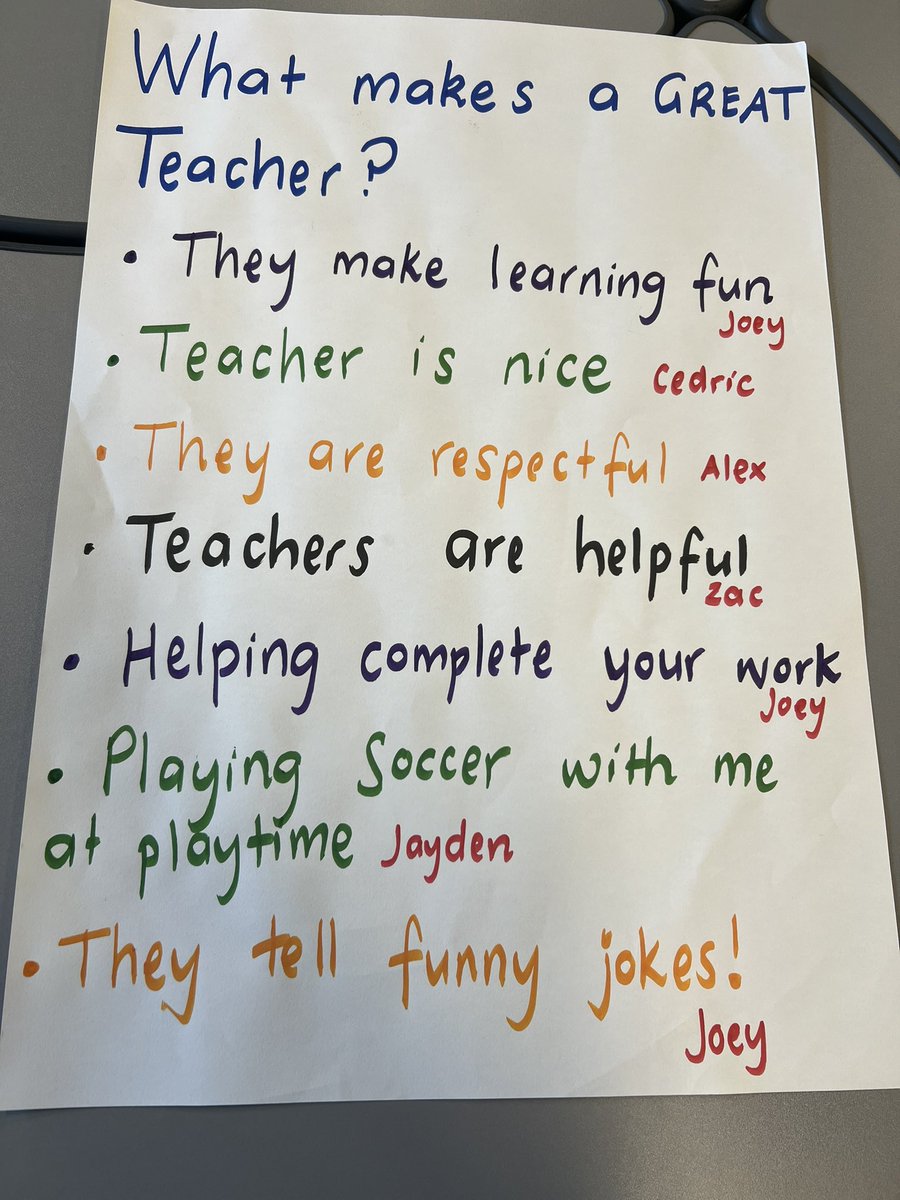 What makes a GREAT
Teacher?
• They make learning fun
Joey
• Teacher is nice Cedric
• They are respectful Alex
• Teachers are helpful
Zac
• Helping complete your work
Joey
• Playing Soccer with me
at playtime Jayden
• They tell funny jokes!
Joey